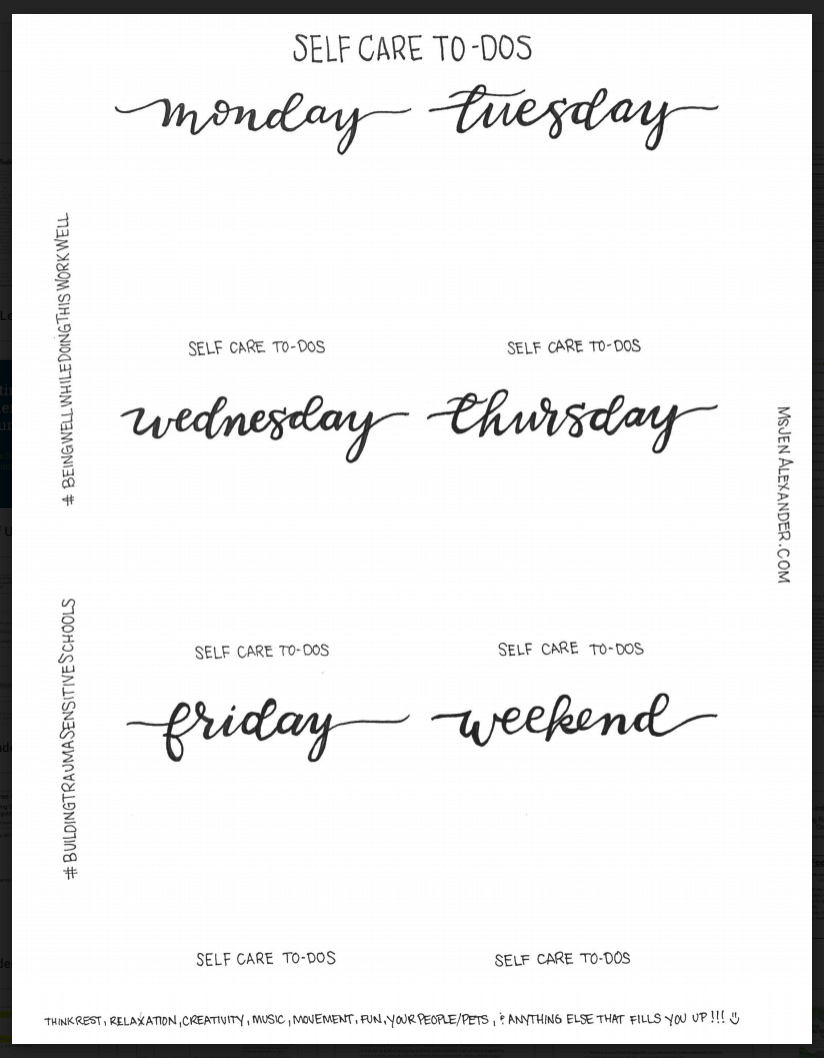 SELF CARE TO-DOS
monday tuesday
SELF CARE TO-DOS SELF CARE TO-DOS
wednesday thursday
SELF CARE TO-DOS SELF CARE TO-DOS
friday weekend
SELF CARE TO-DOS SELF CARE TO-DOS
THINK REST, RELAXATION, CREATIVITY, MUSIC, MOVEMENT, FUN, YOUR PEOPLE/PETS, & ANYTHING ELSE THAT FILLS YOU UP!!! ☺
#BEINGWELLWHILEDOINGTHISWORKWELL
#BUILDINGTRAUMASENSITIVESCHOOLS
MSJENALEXANDER.COM